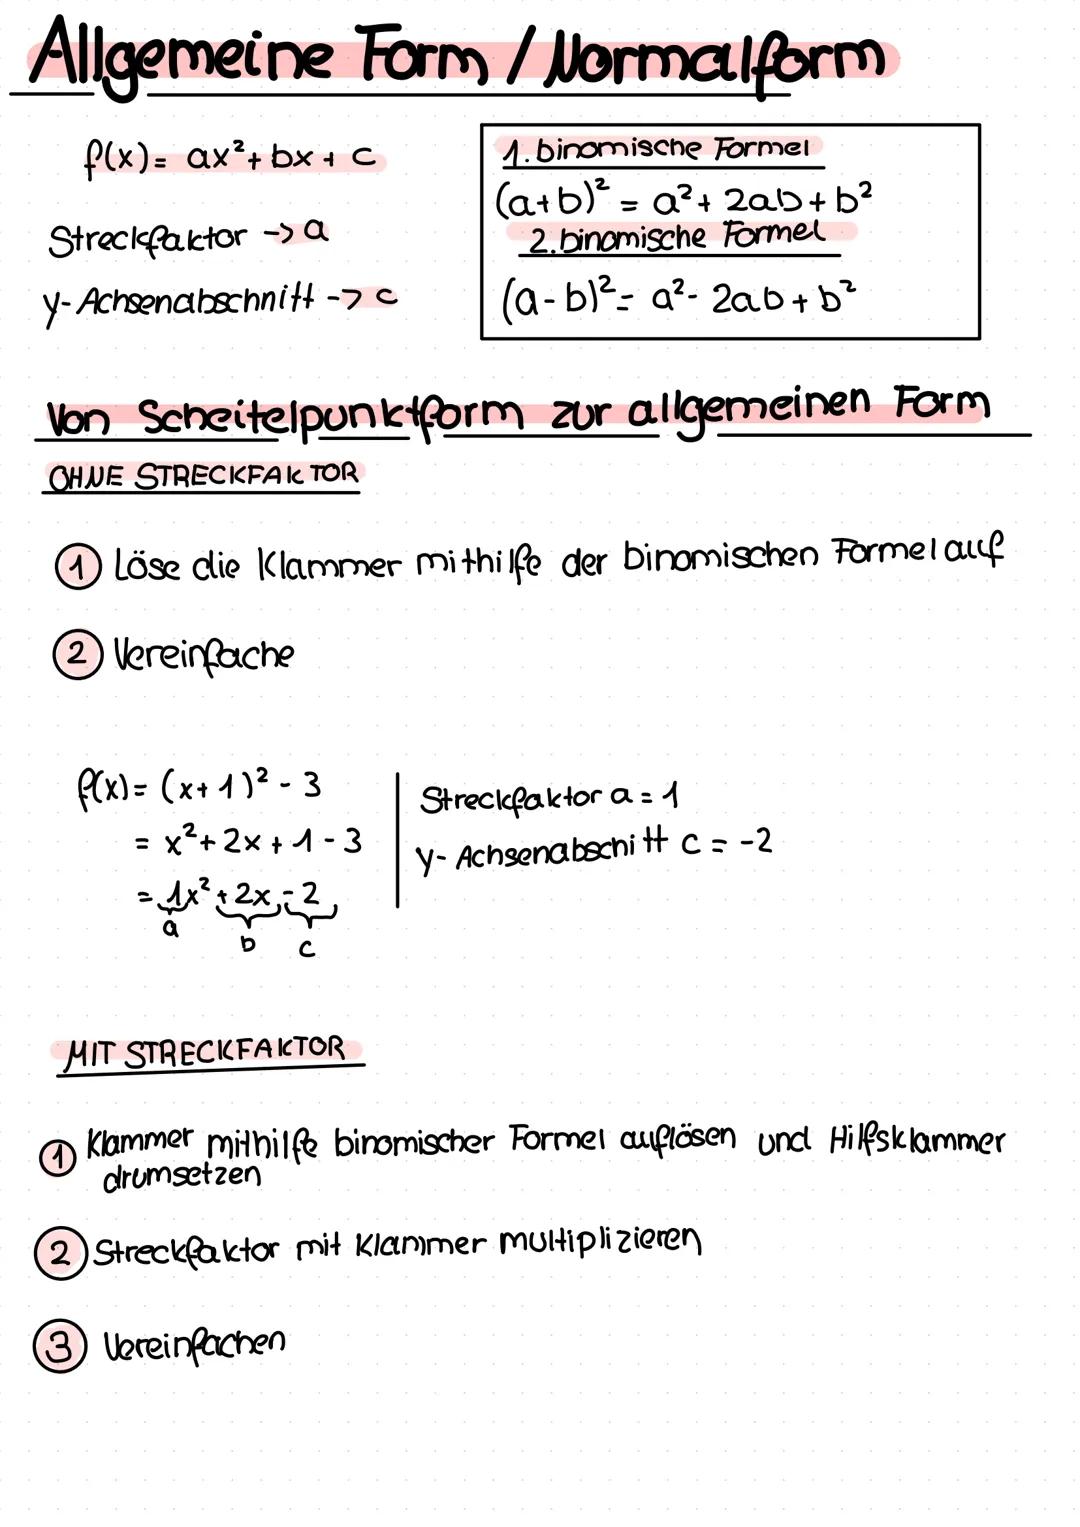 Allgemeine Form / Normalform
f(x) = ax² + bx + c
Streckfaktor -> a
y-Achsenabschnitt -> c
1. binomische Formel
(a+b)² = a² + 2ab + b²
2. binomische Formel
(a-b)² = a² - 2ab + b²
Von Scheitelpunktform zur allgemeinen Form
OHNE STRECKFAKTOR
1 Löse die Klammer mithilfe der binomischen Formel auf
2 Vereinfache
f(x) = (x+1)² - 3
= x² + 2x + 1 - 3
= 1x² + 2x - 2
a b c
Streckfaktor a = 1
y-Achsenabschitt c = -2
MIT STRECKFAKTOR
1 Klammer mithilfe binomischer Formel auflösen und Hilfsklammer
drumsetzen
2 Streckfaktor mit Klammer multiplizieren
3 Vereinfachen